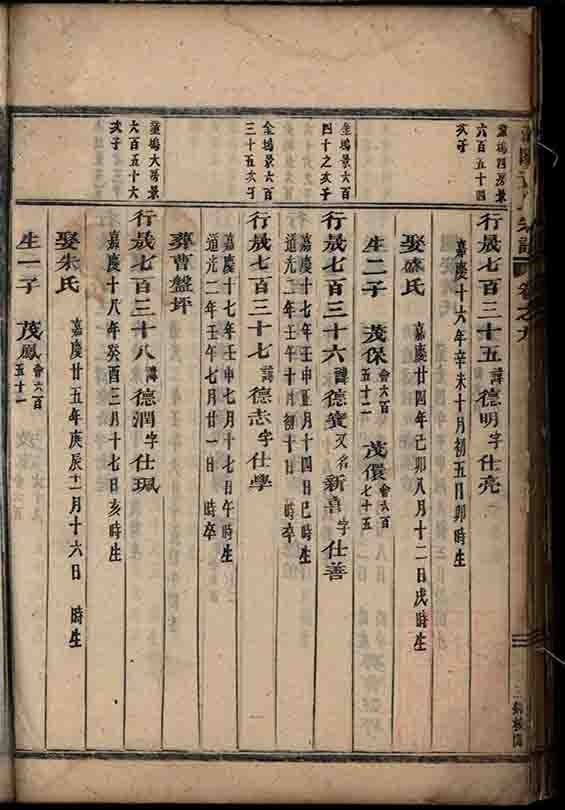 六百五十四
次子
行晟七百三十五 諱德明字仕亮
嘉慶十六年辛未十月初五日卯時生
娶盛氏 嘉慶廿四年己卯八月十二日戌時生
生二子 茂保 會六百五十二 茂儇 會六百七十五
金塢景六百
四十之次子
行晟七百三十六 諱德寶又名新喜字仕善
嘉慶十七年壬申正月十四日巳時生
道光二年壬午十月初十日 時卒
金塢景六百
三十五次子
行晟七百三十七 諱德志字仕學
嘉慶十七年壬申七月十七日午時生
道光二年壬午七月廿一日 時卒
葬曹盤坪
塢大房景
六百五十六
次子
行晟七百三十八 諱德潤字仕珮
嘉慶十八年癸酉三月十七日亥時生
娶朱氏 嘉慶廿五年庚辰十一月十六日 時生
生一子 茂鳳 會六百五十一